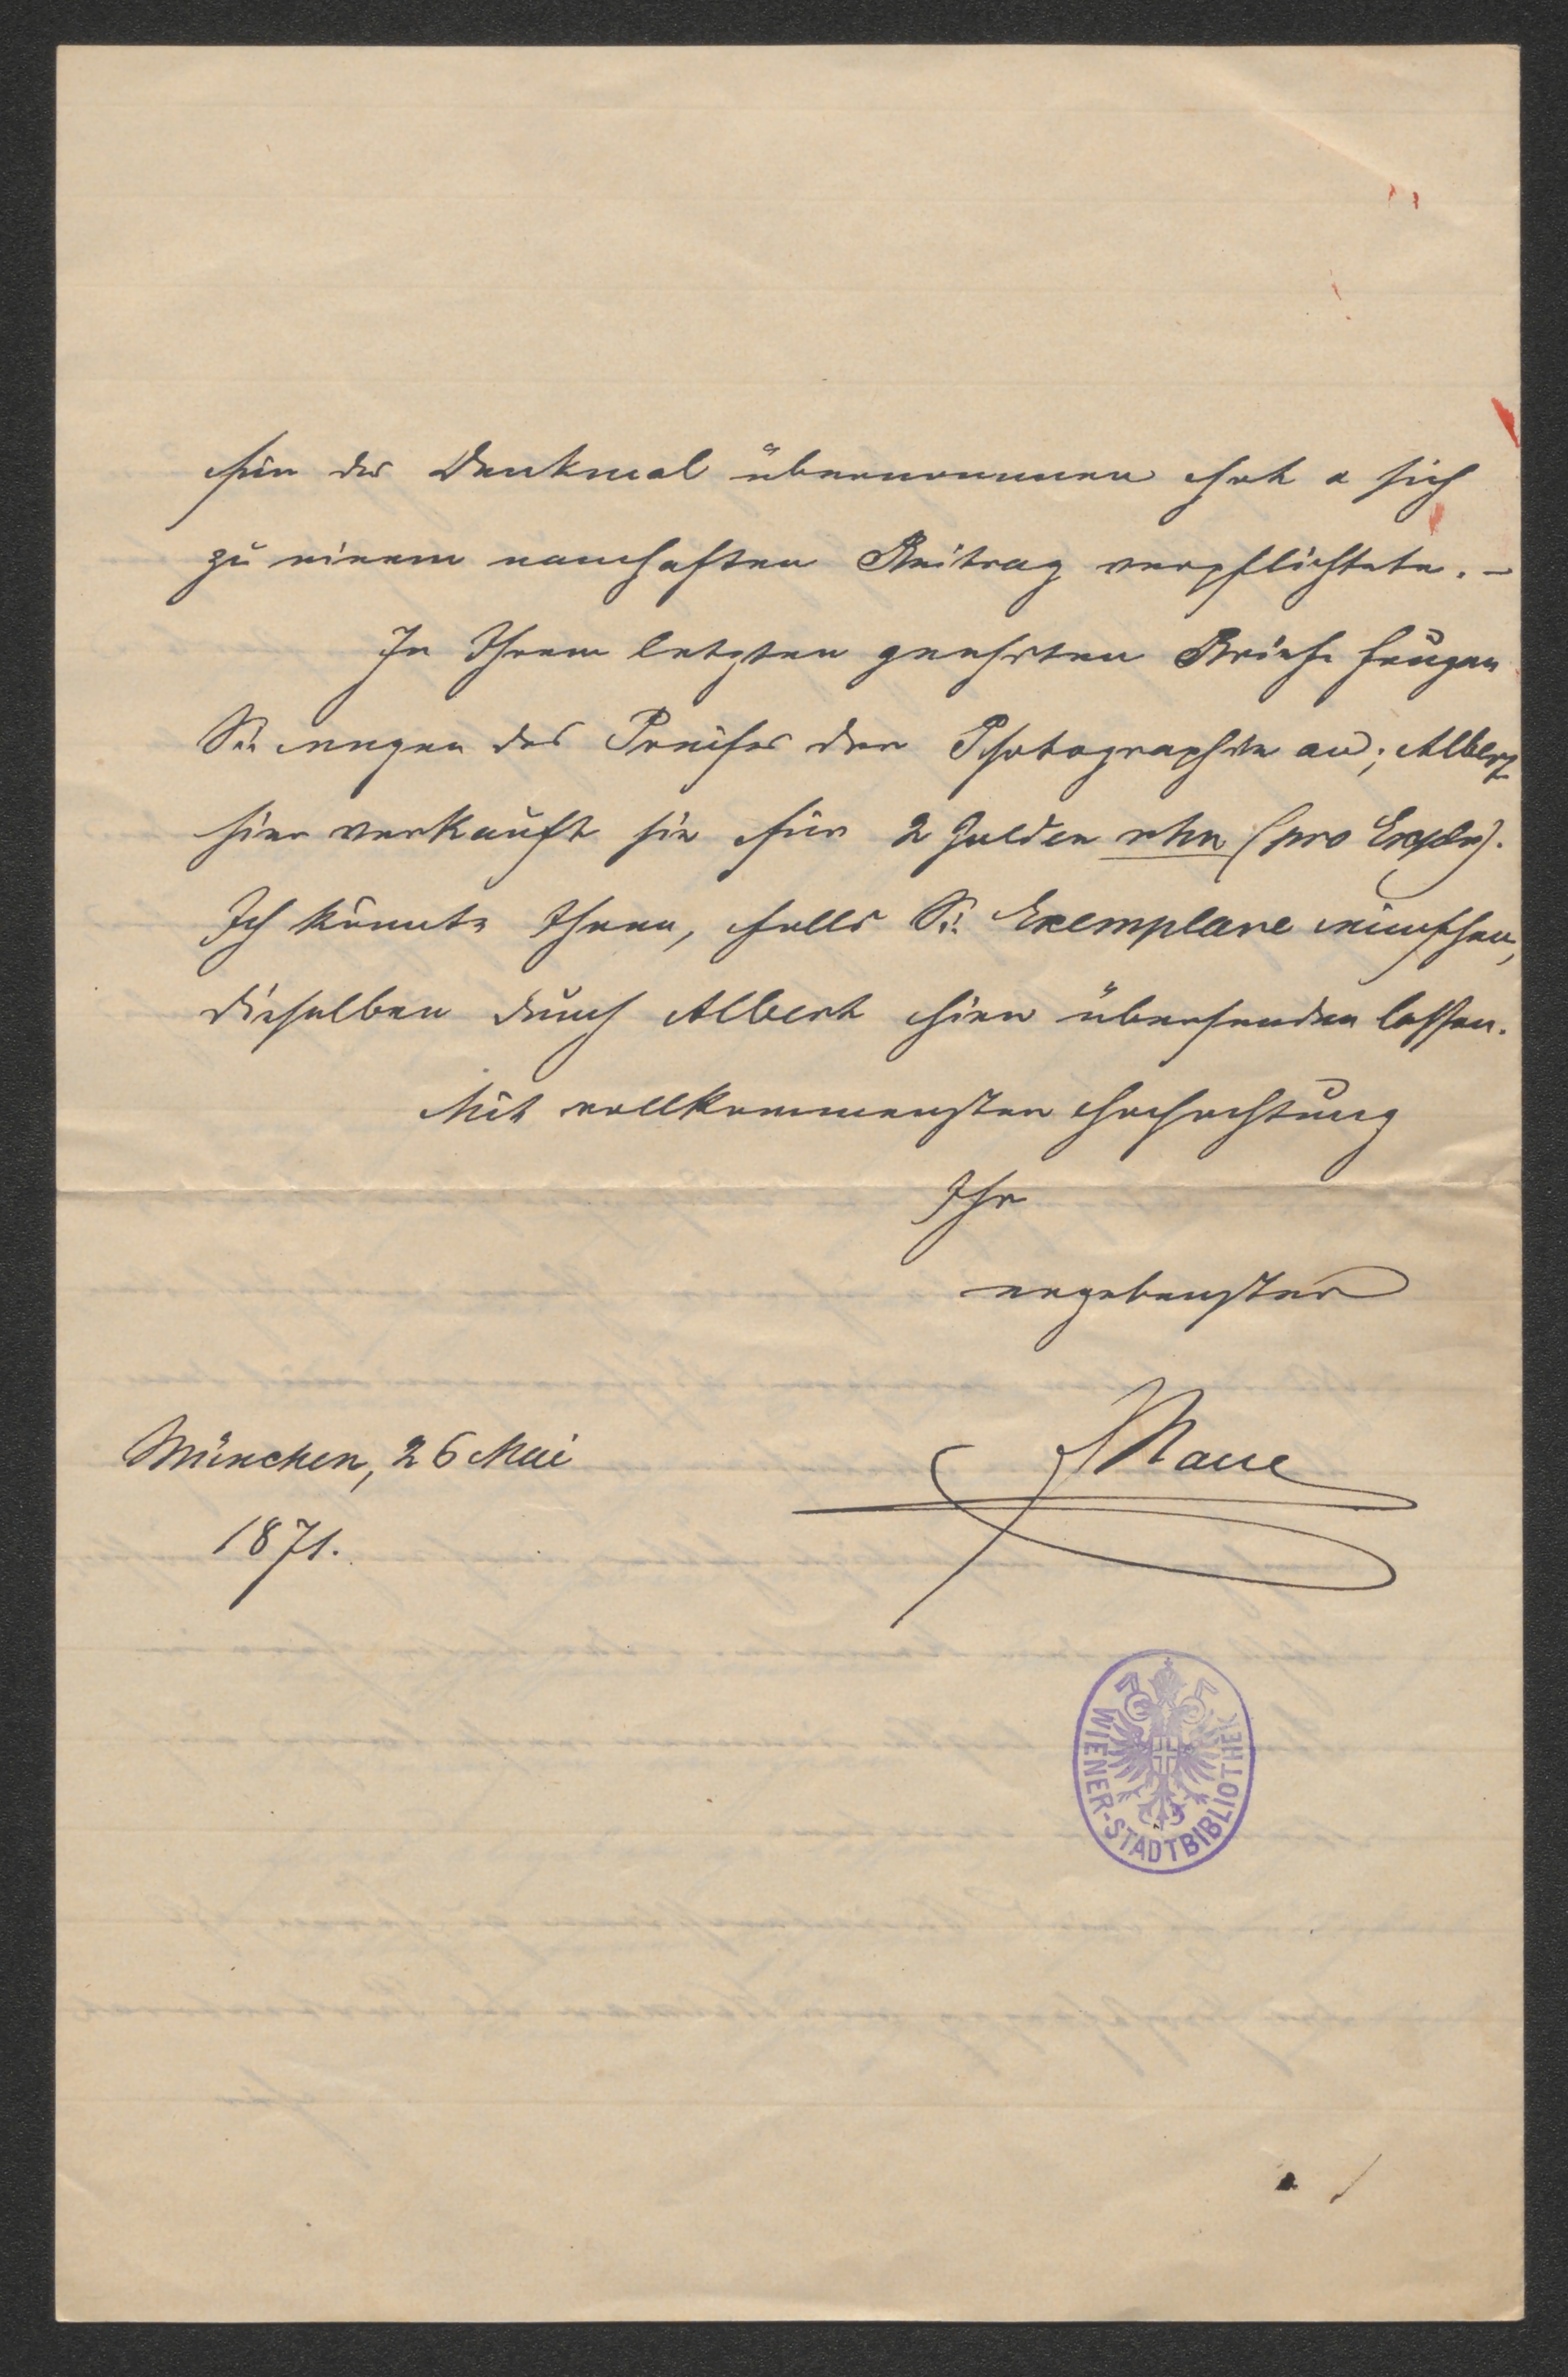 für das Denkmal übernommen hat u sich
zu einem namhaften Beitrag verpflichtete. –
In Ihrem letzten geehrten Briefe frugen
Sie wegen des Preises der Photographie an; Albert
hier verkauft sie für 2 Gulden rhn (pro Explr).
Ich könnte Ihnen, falls Sie Exemplare wünschen,
dieselben durch Albert hier übersenden lassen.
Mit vollkommenster Hochachtung
Ihr
ergebenster
JNaue
München, 26 Mai
1871.
WIENER-STADTBIBLIOTHEK